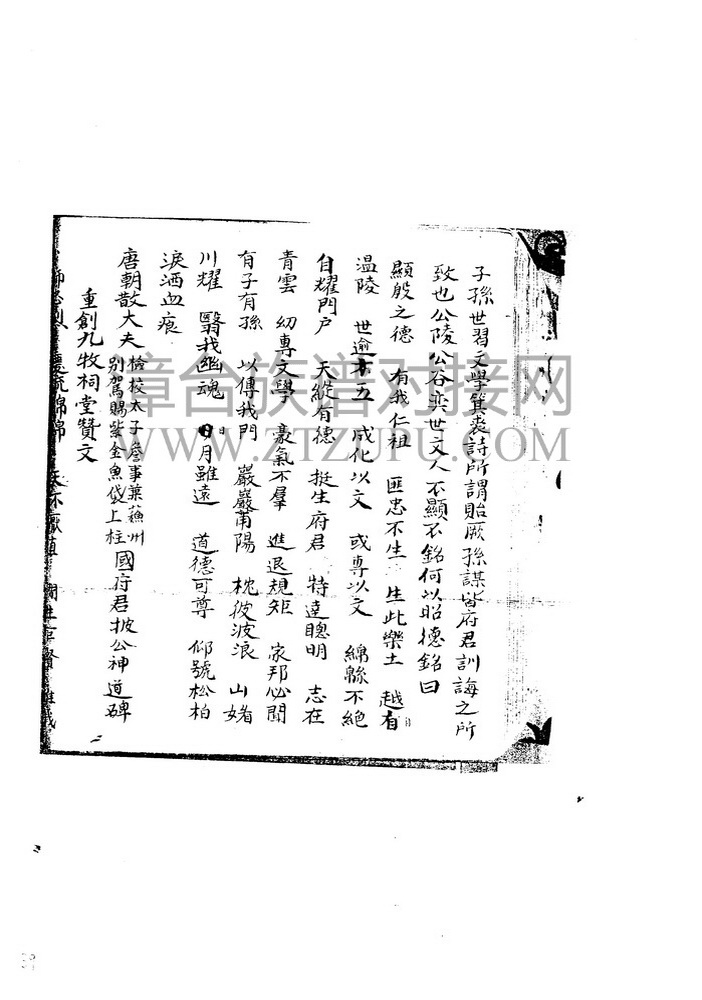 子孫世習文學箕裘詩所謂貽厥孫謀皆府君訓誨之所
致也公陵公谷奕世文人不顯不銘何以昭德銘曰
顯殷之德 有我仁祖 匪忠不生 生此樂土 越有
溫陵 世逾 五 成化以文 或專以文 綿緜不絕
自耀門戶 天縱有德 挺生府君 特達聰明 志在
青雲 幼專文學 豪氣不羣 進退規矩 家邦必聞
有子有孫 以傳我門 巖巖莆陽 枕彼波浪 山
川耀 翳我幽魂 日月雖遠 道德可尊 仰號松柏
淚洒血痕
唐朝散大夫檢校太子詹事兼蘇州別駕賜紫金魚袋上柱國府君披公神道碑
重創九牧祠堂贊文
章台族谱对接网
WWW.ZTZUPU.COM